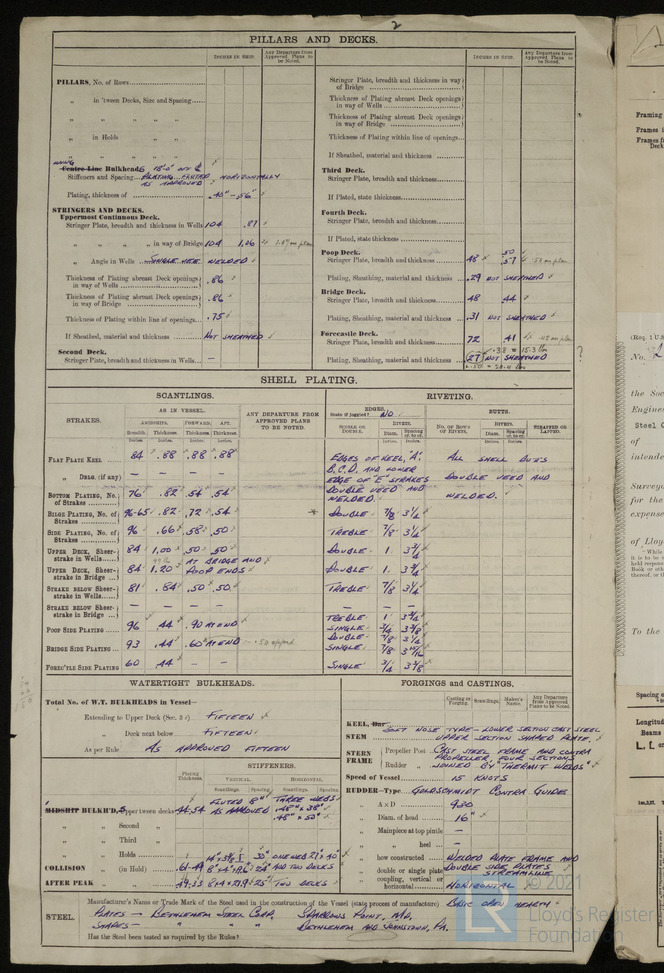 2
PILLARS AND DECKS.
INCHES IN SHIP.
Any Departure from Approved Plans to be Noted.
PILLARS, No. of Rows
„ in 'tween Decks, Size and Spacing
„ „ „ „ „
„ in Holds „ „
„ „ „ „
WING
Centre Line Bulkheads 18'-0" OFF ℄
Stiffeners and Spacing PLATING FLUTED HORIZONTALLY
AS APPROVED
Plating, thickness of .40" - .56"
STRINGERS AND DECKS.
Uppermost Continuous Deck.
Stringer Plate, breadth and thickness in Wells 104 .87
„ „ „ „ in way of Bridge 104 1.06
„ Angle in Wells SINGLE VEE WELDED
Thickness of Plating abreast Deck openings in way of Wells .86
Thickness of Plating abreast Deck openings in way of Bridge .86
Thickness of Plating within line of openings .75
If Sheathed, material and thickness NOT SHEATHED
Second Deck.
Stringer Plate, breadth and thickness in Wells —
INCHES IN SHIP.
Any Departure from Approved Plans to be Noted.
Stringer Plate, breadth and thickness in way of Bridge
Thickness of Plating abreast Deck openings in way of Wells
Thickness of Plating abreast Deck openings in way of Bridge
Thickness of Plating within line of openings
If Sheathed, material and thickness
Third Deck.
Stringer Plate, breadth and thickness
If Plated, state thickness
Fourth Deck.
Stringer Plate, breadth and thickness
If Plated, state thickness
Poop Deck.
Stringer Plate, breadth and thickness 48 .50 .57 .50 on plan
Plating, Sheathing, material and thickness .29 NOT SHEATHED
Bridge Deck.
Stringer Plate, breadth and thickness 48 .44
Plating, Sheathing, material and thickness .31 NOT SHEATHED
Forecastle Deck.
Stringer Plate, breadth and thickness 72 .41
Plating, Sheathing, material and thickness .27 NOT SHEATHED
?
SHELL PLATING.
SCANTLINGS.
RIVETING.
STRAKES.
AS IN VESSEL.
AMIDSHIPS. FORWARD. AFT.
Breadth. Thickness. Thickness. Thickness.
Inches. Inches. Inches. Inches.
ANY DEPARTURE FROM APPROVED PLANS TO BE NOTED.
EDGES.
State if joggled? NO
SINGLE OR DOUBLE.
RIVETS.
Diam. Spacing cr. to cr.
BUTTS.
NO. OF ROWS OF RIVETS.
RIVETS.
Diam. Spacing cr. to cr.
STRAPPED OR LAPPED.
FLAT PLATE KEEL 84 .88 .88 .88 EDGES OF KEEL, 'A', ALL SHELL BUTTS
„ DBLG. (if any) — — — — B.C.D. AND LOWER EDGE OF 'E' STRAKES DOUBLE VEED AND
BOTTOM PLATING, No. of Strakes 76 .82 .54 .54 DOUBLE VEED AND WELDED. WELDED.
BILGE PLATING, No. of Strakes 96-65 .82 .72 .54 DOUBLE 7/8 3 1/4
SIDE PLATING, No. of Strakes 96 .66 .58 .50 TREBLE 7/8 3 1/4
UPPER DECK, Sheerstrake in Wells 84 1.00 .50 .50 DOUBLE 1 3 3/4
UPPER DECK, Sheerstrake in Bridge 84 1.20 AT BRIDGE AND POOP ENDS DOUBLE 1 3 3/4
STRAKE BELOW Sheerstrake in Wells 81 .84 .50 .50 TREBLE 7/8 3 1/4
STRAKE BELOW Sheerstrake in Bridge — — — — — — —
POOP SIDE PLATING 96 .44 .90 AT END TREBLE 1 3 3/4
SINGLE 3/4 3 3/8
BRIDGE SIDE PLATING 93 .44 .60 AT END .50 appd DOUBLE 7/8 3 1/4
SINGLE 7/8 3 11/16
FOREC'TLE SIDE PLATING 60 .44 — SINGLE 3/4 3 3/8
WATERTIGHT BULKHEADS.
Total No. of W.T. BULKHEADS in Vessel—
Extending to Upper Deck FIFTEEN
„ Deck next below FIFTEEN
As per Rule AS APPROVED FIFTEEN
Plating Thickness.
STIFFENERS.
VERTICAL. HORIZONTAL.
Scantlings. Spacing. Scantlings. Spacing.
MIDSHIP BULKH'DS, Upper tween decks .44-.54 FLUTED 8" AS APPROVED THREE WEBS .48" x 38" .48" x 50"
„ „ Second „
„ „ Third „
„ „ Holds
COLLISION „ (in Hold) .61-.49 AND TWO DECKS
AFTER PEAK „ 25" TWO DECKS
FORGINGS and CASTINGS.
Casting or Forging. Scantlings. Maker's Name. Any Departure from Approved Plans to be Noted.
KEEL, Bar
STEM SOFT NOSE TYPE - LOWER SECTION CAST STEEL
UPPER SECTION SHAPED PLATE.
STERN FRAME
Propeller Post CAST STEEL FRAME AND CONTRA PROPELLER, FOUR SECTIONS
Rudder „ JOINED BY "THERMIT WELDS"
Speed of Vessel 15 KNOTS
RUDDER—Type GOLDSCHMIDT CONTRA GUIDE
„ A x D 920
„ Diam. of head 16"
„ Mainpiece at top pintle —
„ „ heel —
„ how constructed WELDED PLATE FRAME AND
„ double or single plate DOUBLE SIDE PLATES STREAMLINE
„ coupling, vertical or horizontal HORIZONTAL
STEEL.
Manufacturer's Name or Trade Mark of the Steel used in the construction of the Vessel (state process of manufacture) BASIC OPEN HEARTH
PLATES - BETHLEHEM STEEL CORP. SPARROWS POINT, MD.
SHAPES - „ „ „ BETHLEHEM AND JOHNSTOWN, PA.
Has the Steel been tested as required by the Rules?
© 2021
LR
Lloyd's Register
Foundation
Framing
Frames
Deck
No.
the Soc
Engine
Steel
of
intende
Survey
for the
expense
of Lloy
To the
Spacing o
Longitud
Beams
L. f. or